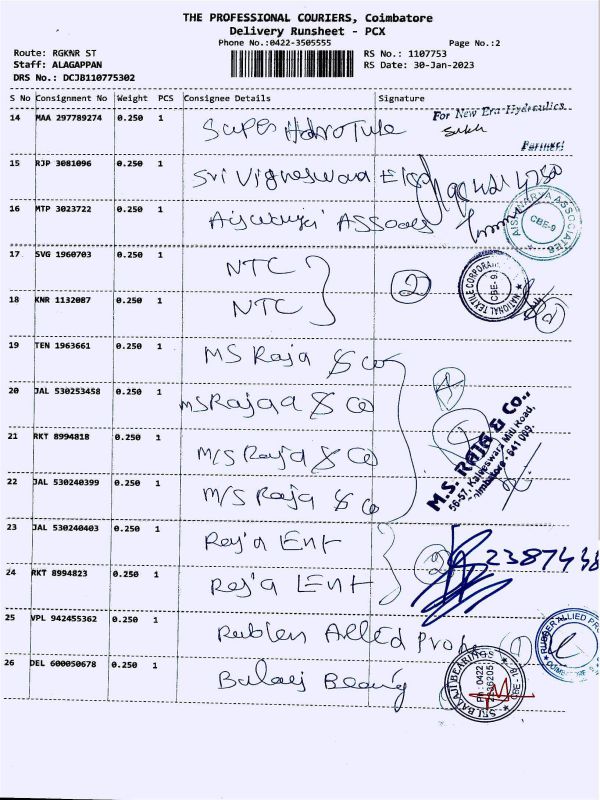 THE PROFESSIONAL COURIERS, Coimbatore
Delivery Runsheet - PCX
Phone No.:0422-3505555
Page No.:2
Route: RGKNR ST
RS No.: 1107753
Staff: ALAGAPPAN
RS Date: 30-Jan-2023
DRS No.: DCJB110775302
S No Consignment No Weight PCS Consignee Details Signature
14 MAA 297789274 0.250 1 For New Era Hydraulics
Partner
15 RJP 3081096 0.250 1 Sri Vigneswara
16 MTP 3023722 0.250 1
AISWARYA ASSOCIATES
CBE-9
17 SVG 1960703 0.250 1 NTC 2
NATIONAL TEXTILE CORPORATION
CBE-9
18 KNR 1132087 0.250 1 NTC
19 TEN 1963661 0.250 1 MS Raja & Co
20 JAL 530253458 0.250 1 MS Rajaa & Co
M.S. RAJA & Co.,
56-57, Kaleeswara Mill Road,
Coimbatore - 641 009.
21 RKT 8994818 0.250 1 M/S Raja & Co
22 JAL 530240399 0.250 1 M/S Raja & Co
23 JAL 530240403 0.250 1 Raja Ent
24 RKT 8994823 0.250 1 Raja Ent 2
25 VPL 942455362 0.250 1 1
RUBBER ALLIED PRO
26 DEL 600050678 0.250 1
SRI BALAJI BEARINGS